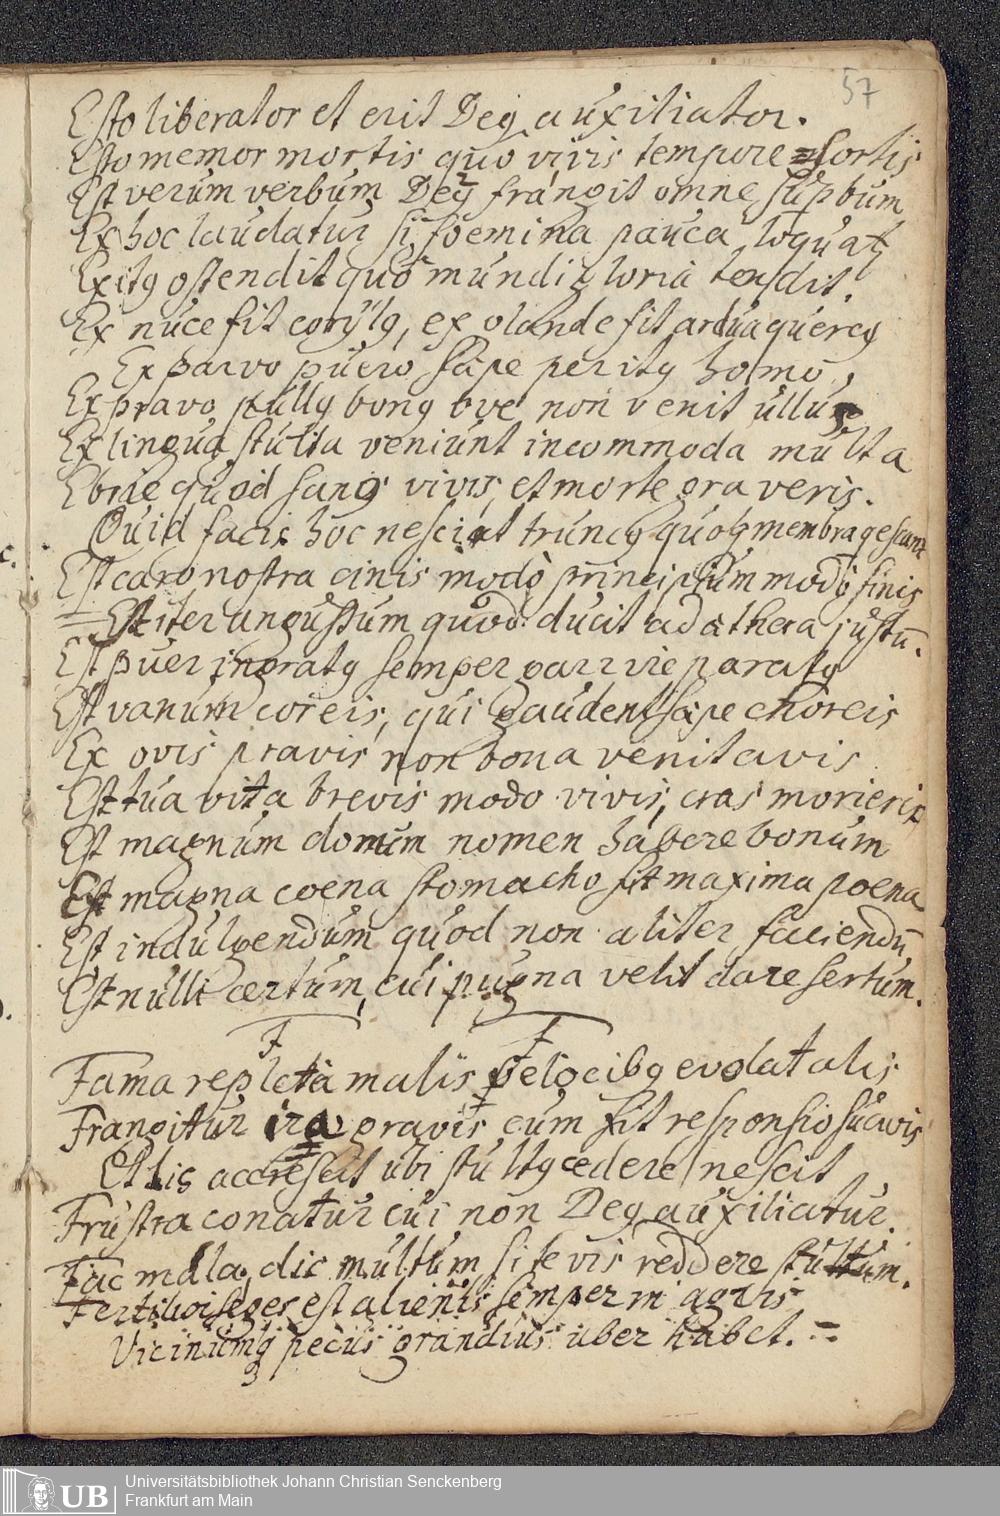 57
Esto liberator et erit Deg auxiliator.
Esto memor mortis quo vivis tempore sortis
Est verum verbum Deg frangit omne supbum
Ex hoc laudatur si foemina pauca loquat
Exitg ostendit quo mundi gloria tendit.
Ex nuce fit corylg, ex glande fit ardua quercg
Ex parvo puero sæpe peritg homo.
Ex pravo pullg bong ove non venit ullum
Ex lingua stulta veniunt incommoda multa
Ebrie quod sang vivis, et morte graveris.
Quid facis hoc nesciat truncg
Est caro nostra cinis modò principium modò finis
Est iter angustum quod ducit ad æthera justū.
Est puer ingratg semper garrire paratg
Est vanum coreis, qui gaudent sæpe choreis
Ex ovis pravis non bona venit avis
Est tua vita brevis modo vivis, cras morieris
Est magnum donum nomen habere bonum
Est magna coena stomacho fit maxima poena
Est indulgendum quod non aliter faciendū
Est nulli certum, cui pugna velit dare sertum.
F F
Fama repleta malis velocibg evolat alis
Frangitur ira gravis cum fit responsio suavis
Et lis accrescit ubi stultg cedere nescit
Frustra conatur cui non Deg auxiliatur.
Fac mala, dic multum si te vis reddere stultum.
Fertilioi seges est alienis semper in agris
Vicinumq pecus grandius uber habet.
UB Universitätsbibliothek Johann Christian Senckenberg
Frankfurt am Main